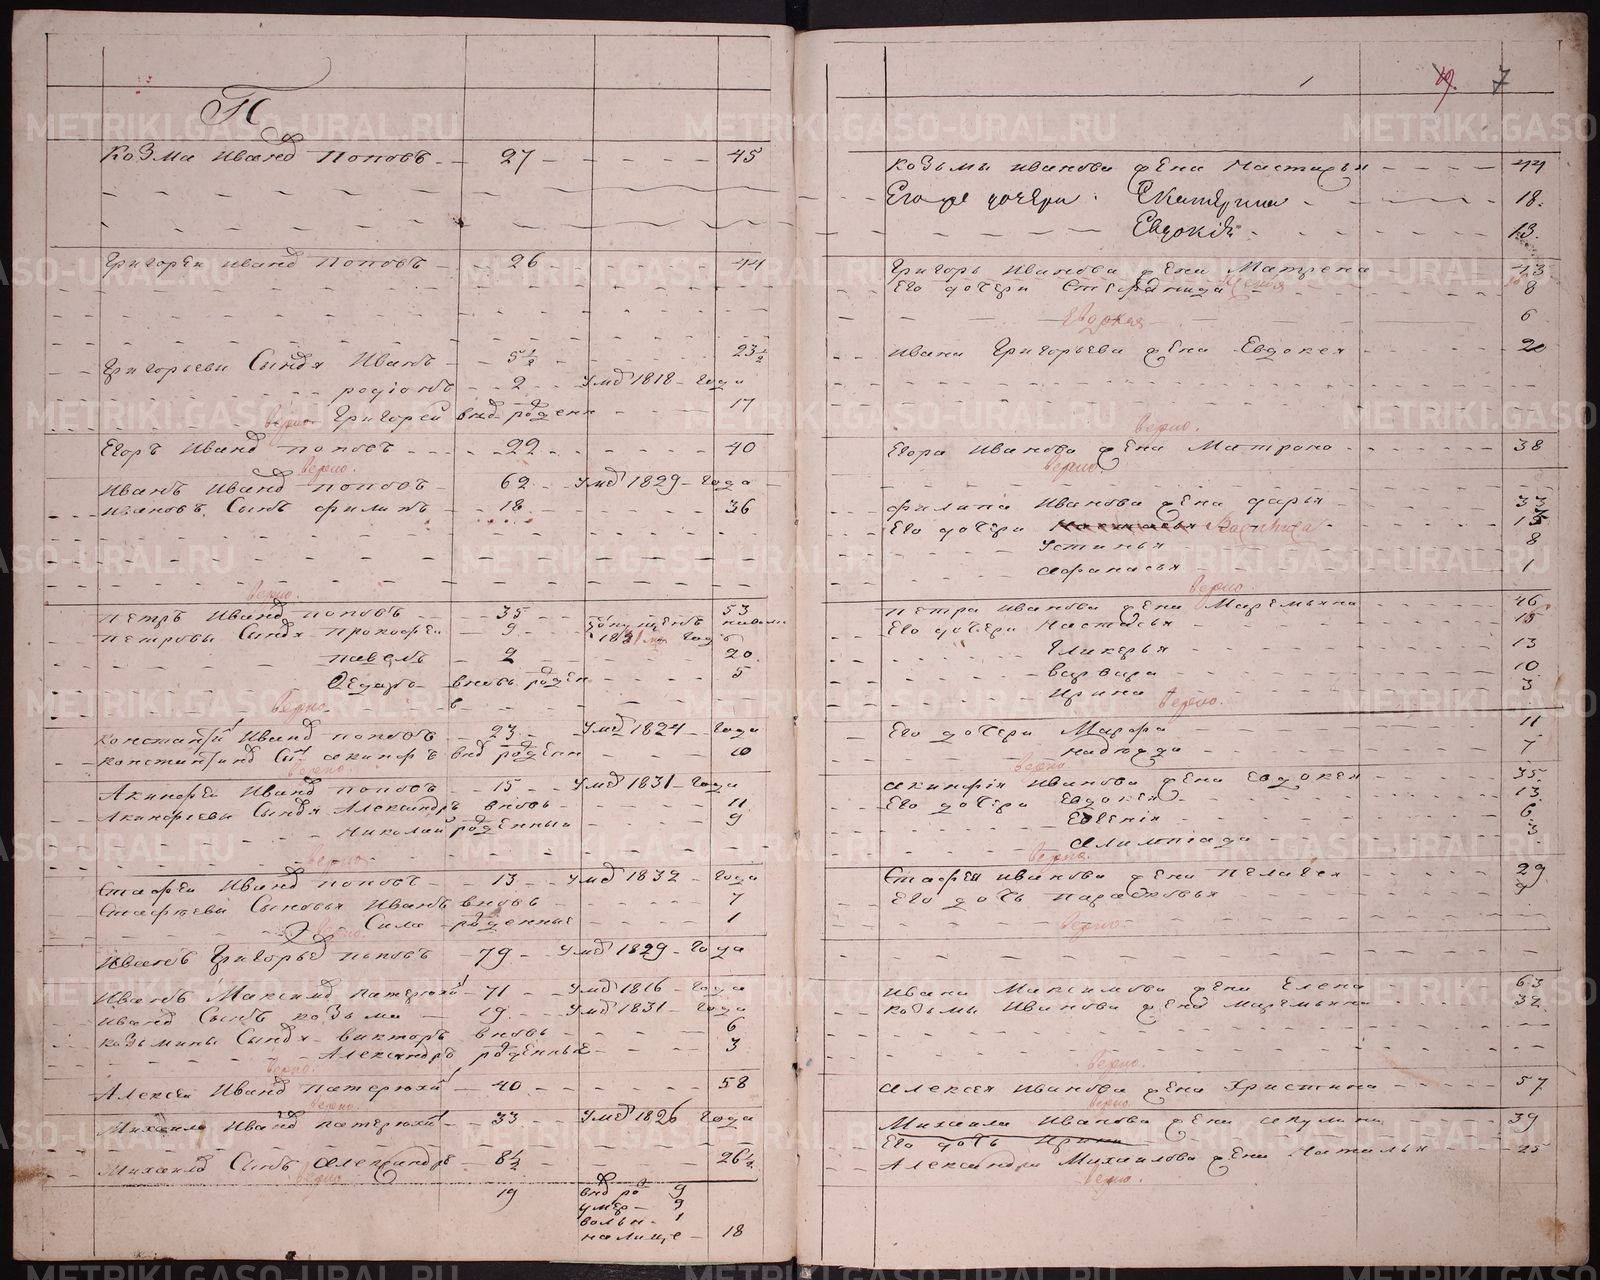 П
Козма Иванд Поповъ 27 45
Григорей Иванд Поповъ 26 44
Григорьевы Сындя Иванъ 5 1/2 23 1/2
родіонъ 2 Умд 1818 Года
верно Григорей внд роденн 17
Егоръ Иванд поповъ 22 40
верно.
Иванъ Иванд поповъ 62 Умд 1829 Года
Ивановъ Сынъ филипъ 18 36
верно.
петръ Иванд поповъ 35 53
петровы Сындя Прокофеи 9
павелъ 2 20
вновь роден 5
верно.
Иванд поповъ 23 Умд 1824 Года
внд роденн 10
верно.
Акинфеи Иванд поповъ 15 Умд 1831 Года
Акинфеевы Сындя Александръ вновь 11
Николай рожденныи 9
верно
Иванд поповъ 13 Умд 1832 Года
Сыновья Иванъ вновь 7
Сила рожденные 1
верно.
Иванъ Григорьед поповъ 79 Умд 1829 Года
Иванъ Максимд 71 Умд 1816 Года
Иванд Сынъ козьма 19 Умд 1831 Года
козьмины Сындя викторъ вновь 6
Александръ рожденные 3
верно.
Алексеи Иванд 40 58
верно.
Михаило Иванд 33 Умд 1826 Года
Михаилд Сынъ Александръ 8 1/2 26 1/2
верно
19 внд ро 9
умер 9
вольн 1
налице 18
7
козьмы иванова жена Настасья 44
Его же дочери Екатерина 18.
Евдокія 13.
Григорь Иванова жена Матрена 43
Его дочери Степанида 8
Евдокея 6
Ивана Григорьева жена Евдокея 20
верно.
Егора Иванова жена Матрона 38
верно
филипа Иванова жена дарья 33
Его дочери Василиса
Устинья 8
Афанасья 1
верно
петра иванова жена Маремьяна 46
Его дочери Настасья 15
Гликерья 13
варвара 10
Ирина 3
верно.
Его дочери Марфа 11
надежда 7
верно
акинфія Иванова жена Евдокея 35
Его дочери Евдокея 13
Евгенія 6
Алимпіада 3
верно.
иванова жена пелагея 29
Его дочь парасковья
верно
Ивана Максимова жена Елена 63
козьмы Иванова жена маремьяна 32
верно.
алексея Иванова жена Христина 57
верно
Михаила Иванова жена акулина 39
Его дочь Ирина
Александра Михаилова жена Наталья 25
верно.